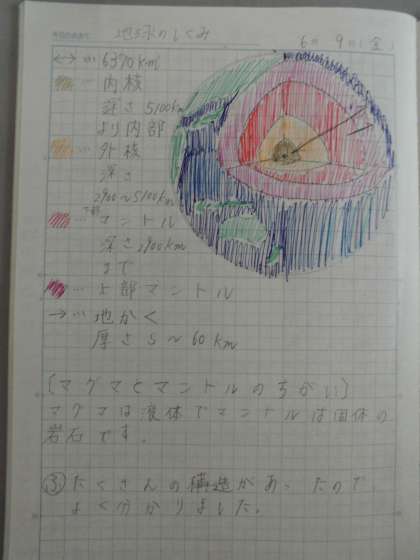 地球のしくみ
6月 9日(金)
↔ … 6370km
… 内核
深さ5100km
より内部
… 外核
深さ
2900〜5100km
… 下部マントル
深さ2900km
まで
… 上部マントル
→ … 地かく
厚さ5〜60km
[マグマとマントルのちがい]
マグマは液体でマントルは固体の
岩石です。
③たくさんの構造があったので
よく分かりました。